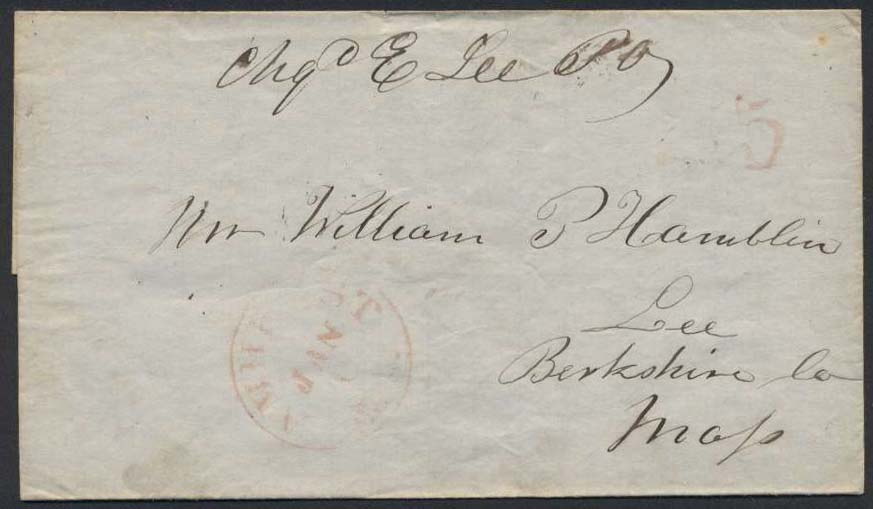 Chgd E Lee PO
5
Mr William P Hamblin
Lee
Berkshire Co
Mass
JAN